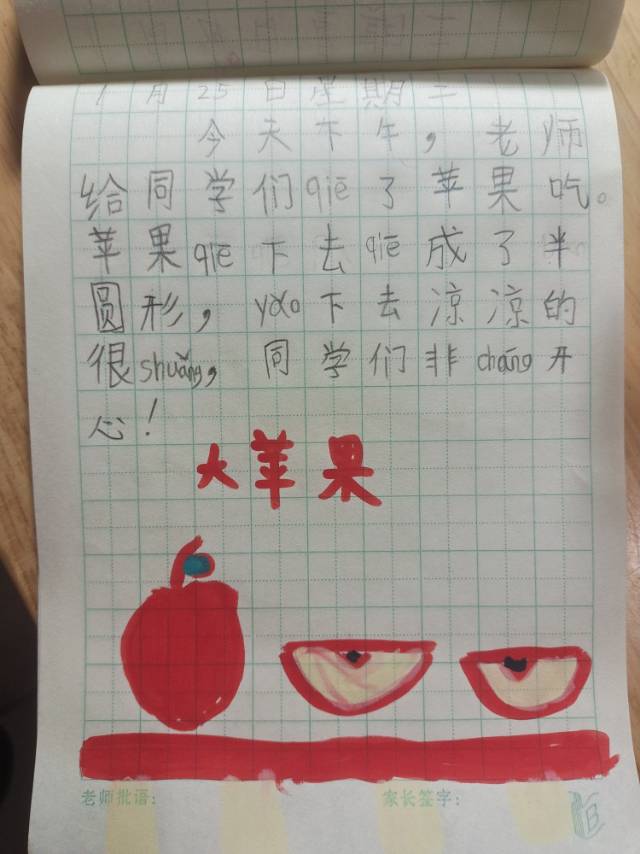 1月25日星期二
今天下午，老师
给同学们qiē了苹果吃。
苹果qiē下去qiē成了半
圆形，yǎo下去凉凉的
很shuǎng，同学们非cháng开
心！
大苹果
老师批语：
家长签字：